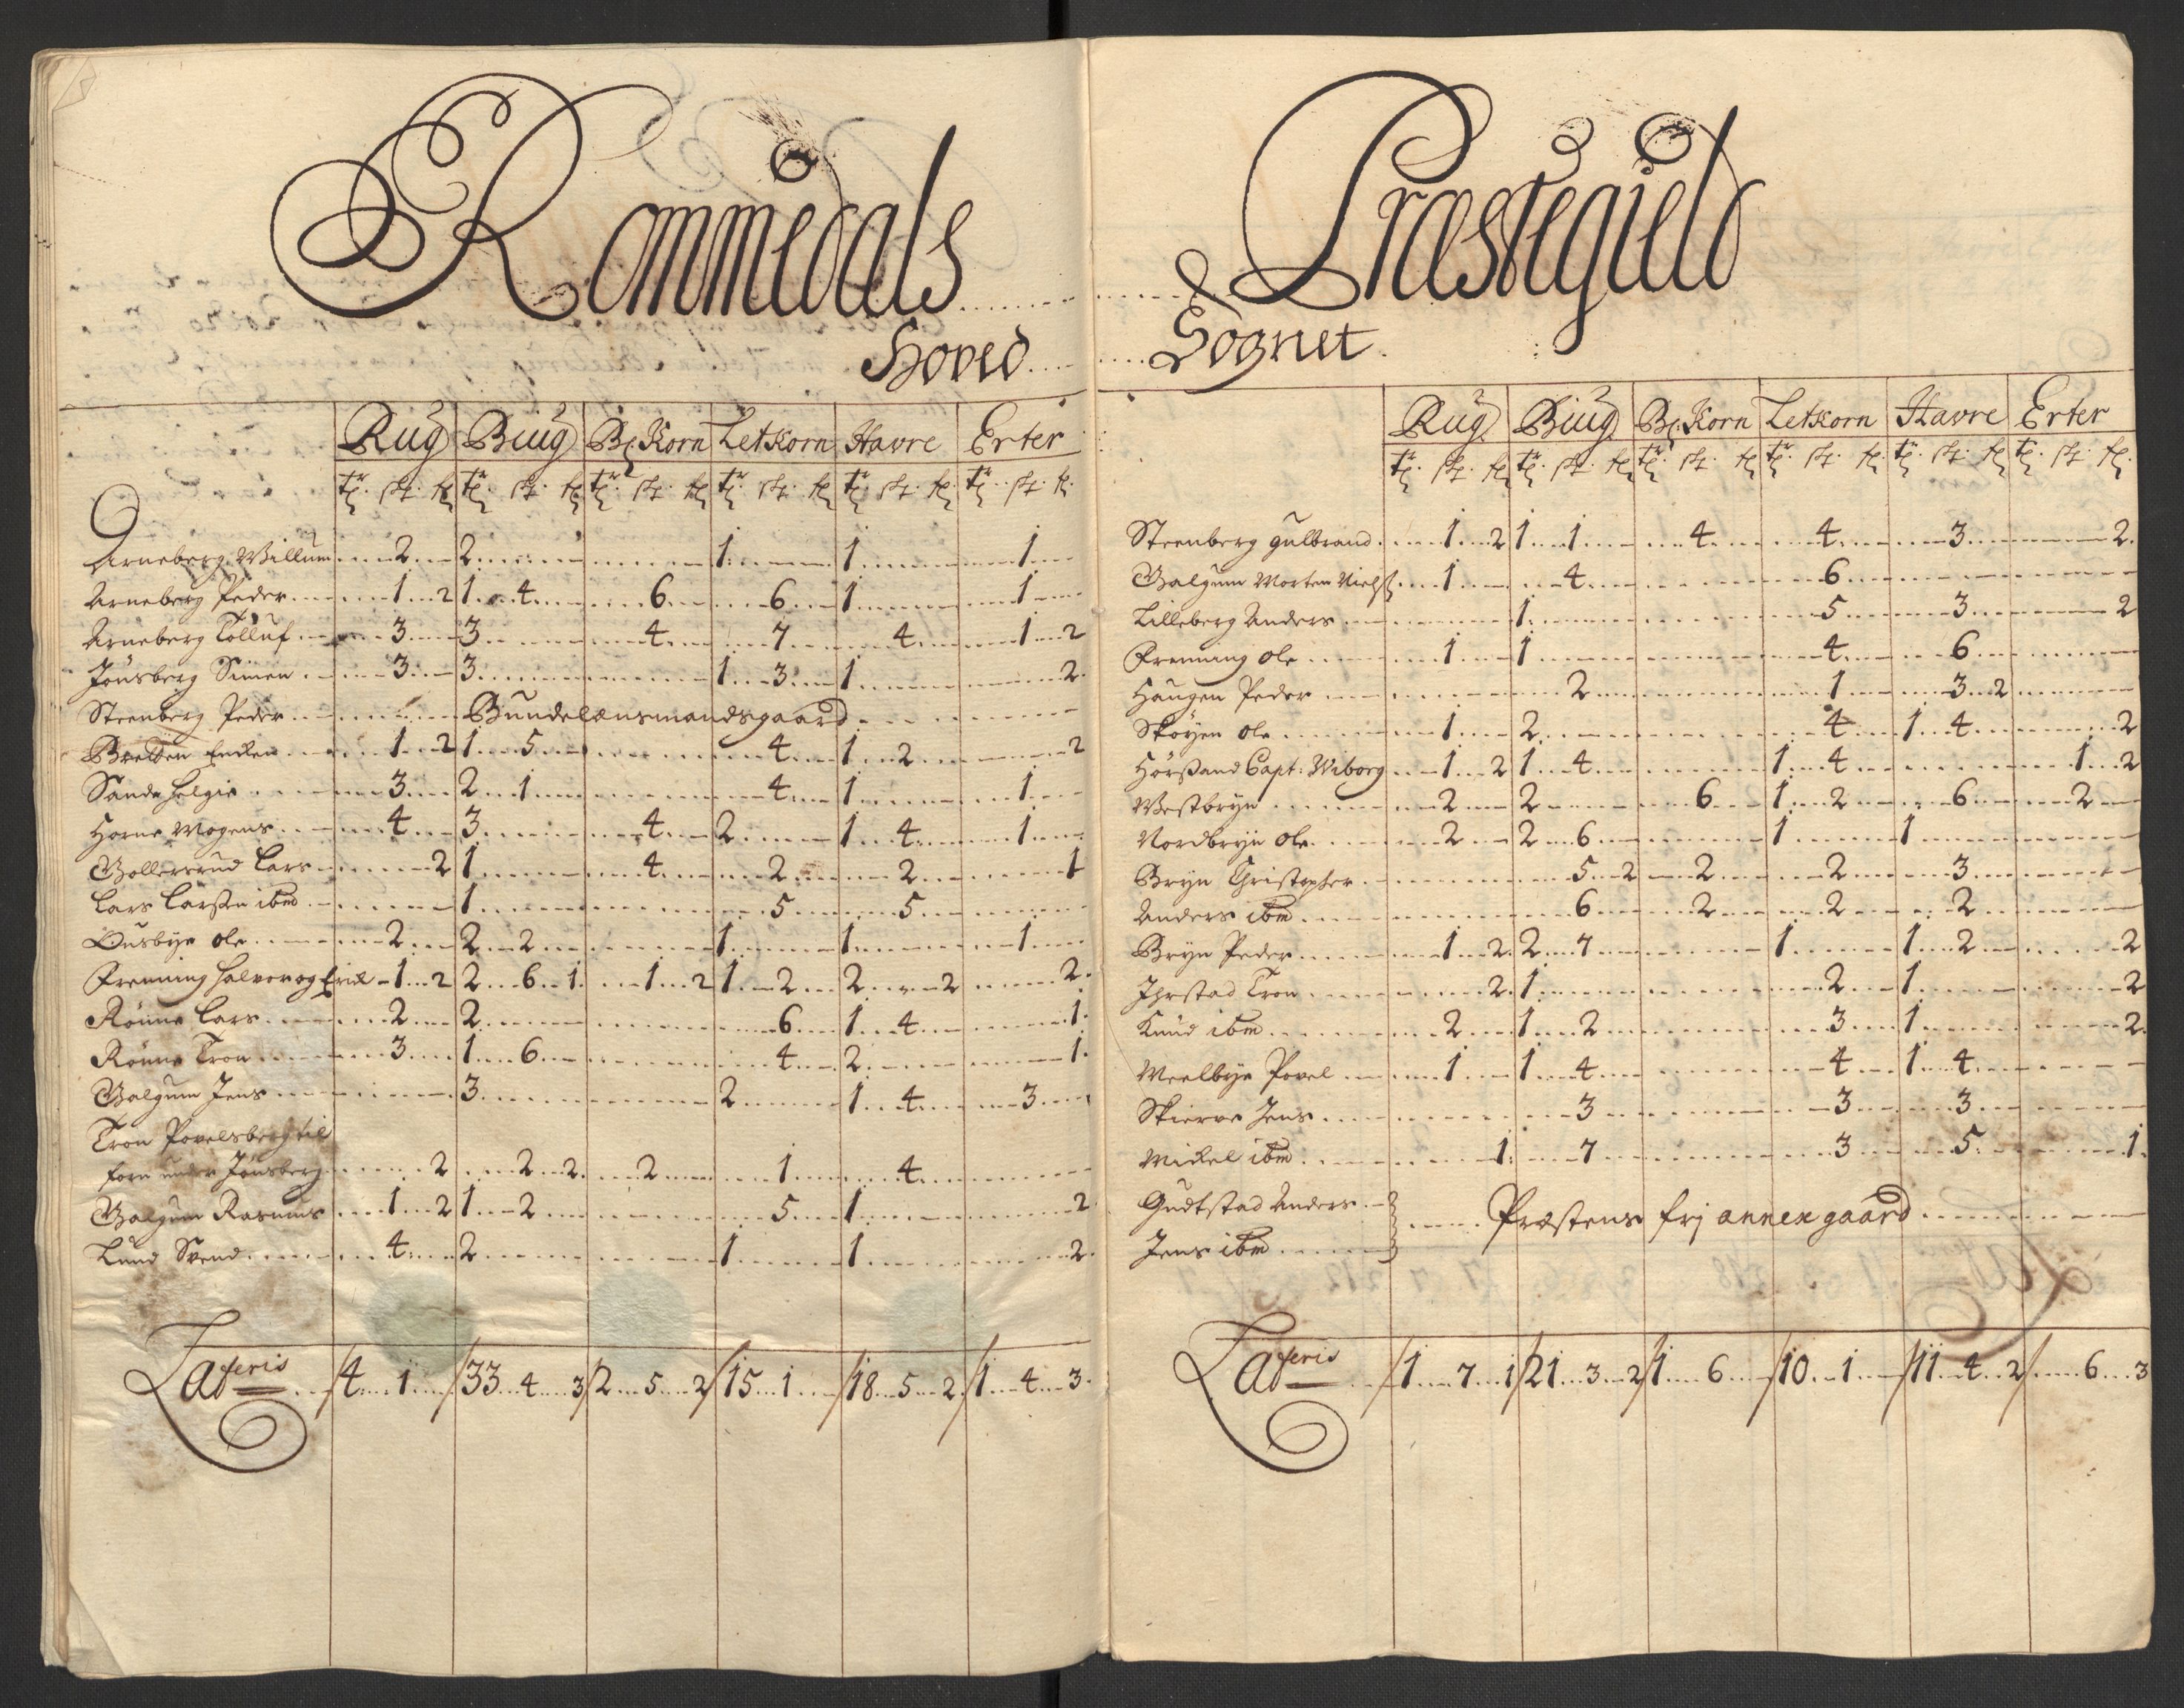 Rommedals
Hoved
Rug Biug Bl. Korn Letkorn Havre Erter
Arneberg Willum 2 2 1 1 1
Arneberg Peder 1 2 1 4 6 6 1 1
Arneberg Tolluf 3 3 4 7 4 1 2
Jönsberg Simen 3 3 1 3 1 2
Steenberg Peder Bundelænsmandsgaard
Bretten Endre 1 2 1 5 4 1 2 2
Sande helgie 3 2 1 4 1 1
Horne Mogens 4 3 4 2 1 4 1
Gollersrud Lars 2 1 4 2 2 1
Lars Larsßen ibm 1 5 5
Ousbye ole 2 2 2 1 1 1
Frenning halvor og Erich 1 2 2 6 1 1 2 1 2 2 2 2
Rönne Lars 2 2 6 1 4 1
Rönne Tron 3 1 6 4 2 1
Galgum Jens 3 2 1 4 3
Tron Povelsberg til
forn under Jönsberg 2 2 2 2 1 4
Galgum Rasmus 1 2 1 2 5 1 2
Lund Svend 4 2 1 1 2
Lateris /4 1 /33 4 3 /2 5 2 /15 1 /18 5 2 /1 4 3
Præstegield
Sognet
Rug Biug Bl. Korn Letkorn Havre Erter
Steenberg gulbrand 1 2 1 1 4 4 3 2
Galgum Morten Nielß 1 4 6
Lilleberg Anders 1 5 3 2
Frenning ole 1 1 4 6
Haugen Peder 2 1 3 2
Skoyen ole 1 2 4 1 4 2
Hörsand Capt: Wiborg 1 2 1 4 1 4 1 2
Westbrye 2 2 6 1 2 6 2
Nordbrye ole 2 2 6 1 1
Brye Christopher 5 2 2 2 3
Anders ibm 6 2 2 2
Brye Peder 1 2 2 7 1 1 2 2
Ihrstad Tron 2 1 2 1 2
Knud ibm 2 1 2 3 1 2
Meelbye Povel 1 1 4 4 1 4
Skierve Jens 3 3 3
Mickel ibm 1 7 3 5 1
Gudtstad Anders
Jens ibm Præstens frj annex gaard
Lateris /1 7 1 /21 3 2 /1 6 /10 1 /11 4 2 / 6 3